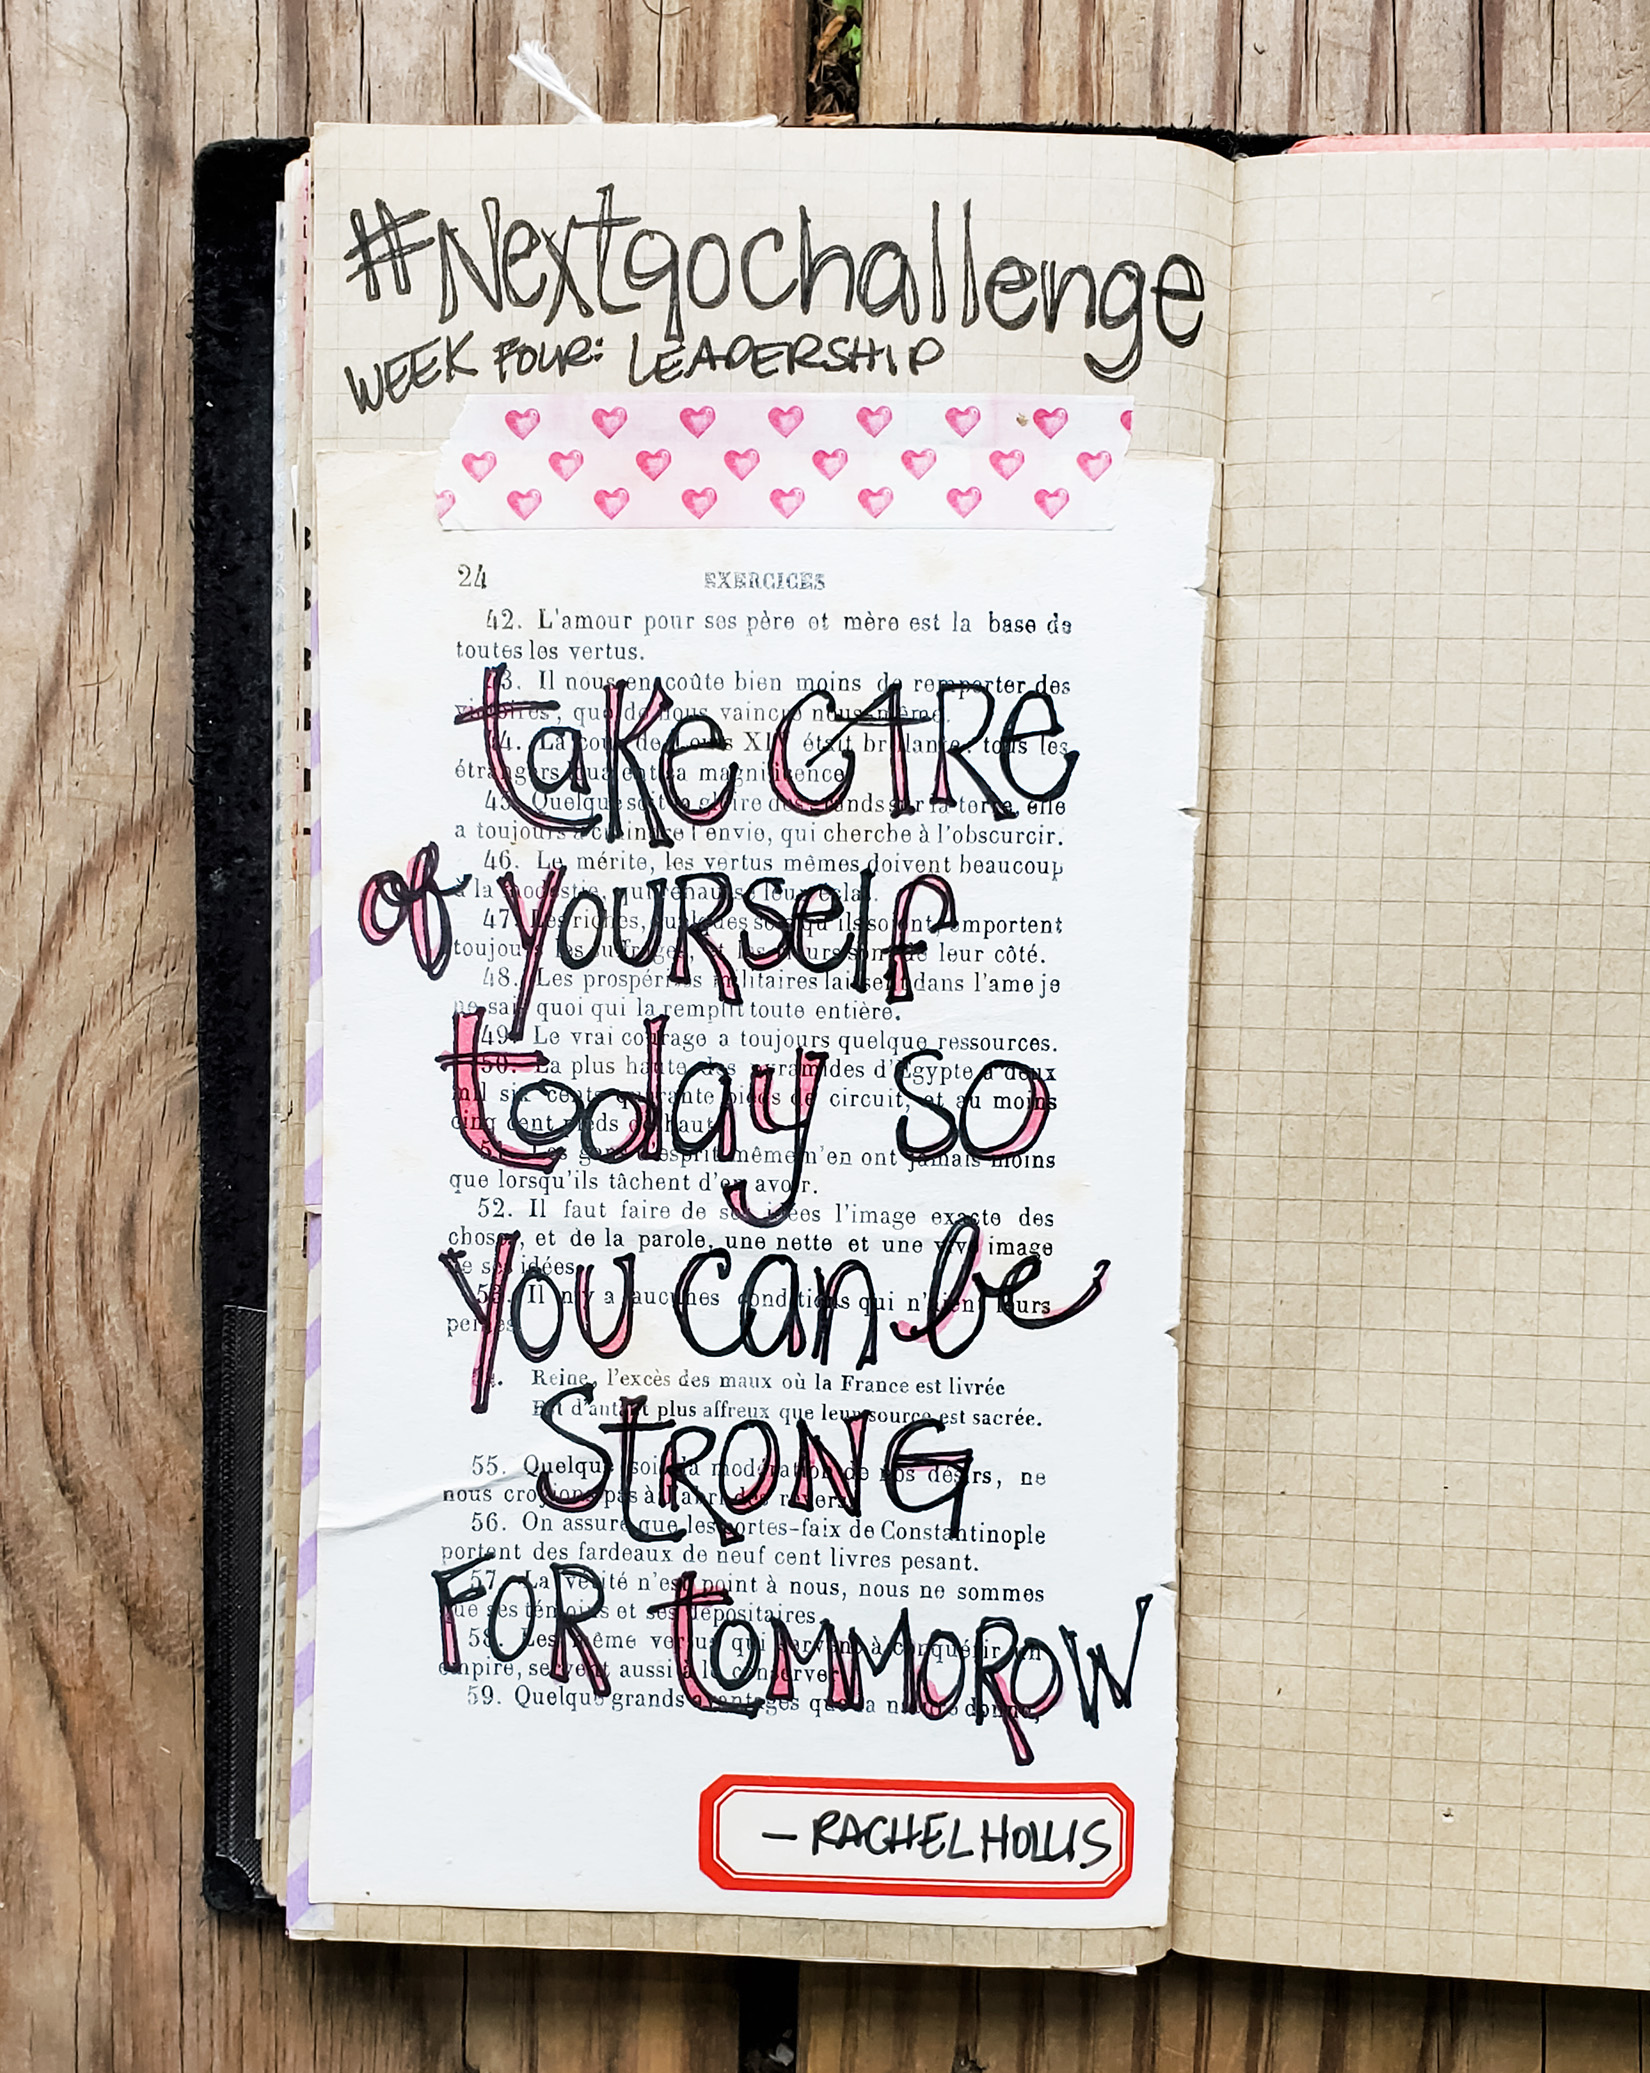 #Next90challenge
WEEK FOUR: LEADERSHIP
take CARE
of yourself
today so
you can be
STRONG
FOR tomMOROW
— RACHEL HOLLIS
24 EXERCICES
42. L'amour pour ses père et mère est la base de
toutes les vertus.
43. Il nous en coûte bien moins de remporter des
victoires, que de nous vaincre nous-même.
44. La cour de Louis XIV était brillante: tous les
étrangers la magnificence
45. Quelque soit la gloire des grands sur la terre, elle
a toujours à craindre l'envie, qui cherche à l'obscurcir.
46. Le mérite, les vertus mêmes doivent beaucoup
à la modestie, qui rehausse leur éclat.
47. Les riches, quelques sots qu'ils soient, emportent
toujours les suffrages, et les rieurs sont de leur côté.
48. Les prospérités militaires laissent dans l'ame je
ne sais quoi qui la remplit toute entière.
49. Le vrai courage a toujours quelque ressources.
50. La plus haute des pyramides d'Égypte a deux
mil six cents quarante pieds de circuit, et au moins
cinq cent pieds de haut.
51. Les gens d'esprit même n'en ont jamais moins
que lorsqu'ils tâchent d'en avoir.
52. Il faut faire de ses idées l'image exacte des
choses, et de la parole, une nette et une vive image
de ses idées.
53. Il n'y a aucunes conditions qui n'aient leurs
peines.
54. Reine, l'excès des maux où la France est livrée
Est d'autant plus affreux que leur source est sacrée.
55. Quelque soit la modération de nos désirs, ne
nous croyions pas à l'abri des revers.
56. On assure que les portes-faix de Constantinople
portent des fardeaux de neuf cent livres pesant.
57. La vérité n'est point à nous, nous ne sommes
que ses témoins et ses dépositaires.
58. Les même vertus qui servent à conquérir un
empire, servent aussi à le conserver.
59. Quelque grands avantages que la nature donne,